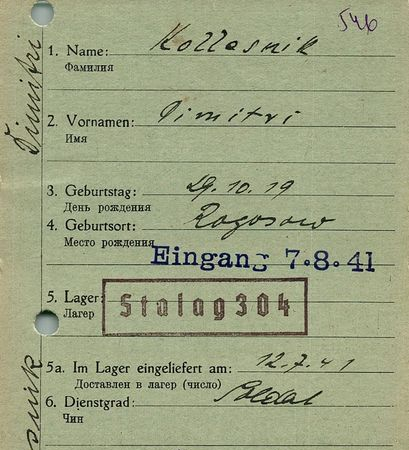 546
1. Name: Kollesnik
Фамилия
2. Vornamen: Dimitri
Имя
3. Geburtstag: 29.10.19
День рождения
4. Geburtsort: Rogosow
Место рождения
Eingang 7.8.41
5. Lager: Stalag 304
Лагерь
5a. Im Lager eingeliefert am: 12.7.41
Доставлен в лагерь (число)
6. Dienstgrad: Soldat
Чин
Dimitri